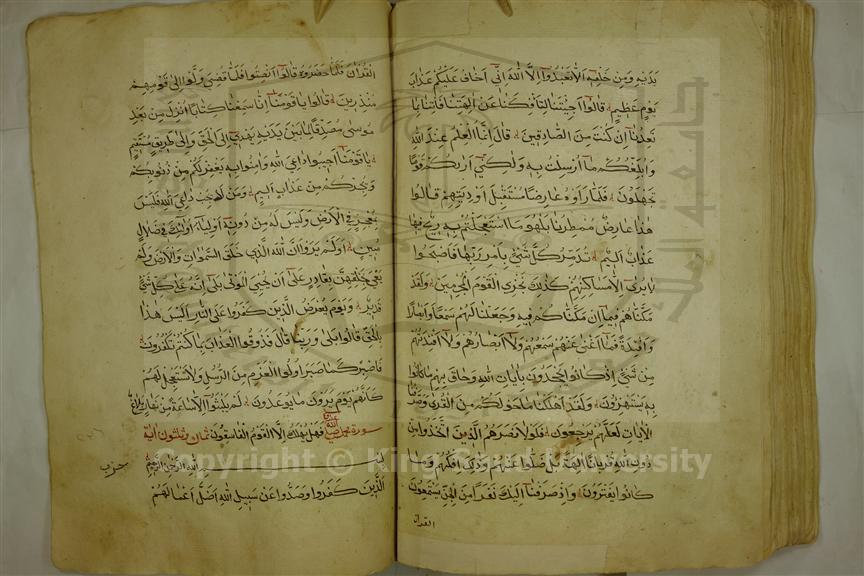 يديه ومن خلفه الا تعبدوا الا الله اني اخاف عليكم عذاب
يوم عظيم قالوا اجئتنا لتافكنا عن الهتنا فاتنا بما
تعدنا ان كنت من الصادقين قال انما العلم عند الله
وابلغكم ما ارسلت به ولكني اريكم قوما
تجهلون فلما راوه عارضا مستقبل اوديتهم قالوا
هذا عارض ممطرنا بل هو ما استعجلتم به ريح فيها
عذاب اليم تدمر كل شئ بامر ربها فاصبحوا
لا يرى الا مساكنهم كذلك نجزي القوم المجرمين ولقد
مكناهم فيما ان مكناكم فيه وجعلنا لهم سمعا وابصارا
وافئدة فما اغنى عنهم سمعهم ولا ابصارهم ولا افئدتهم
من شئ اذ كانوا يجحدون بايات الله وحاق بهم ما كانوا
به يستهزؤن ولقد اهلكنا ما حولكم من القرى وصرفنا
الايات لعلهم يرجعون فلولا نصرهم الذين اتخذوا من
دون الله قربانا الهة بل ضلوا عنهم وذلك افكهم وما
كانوا يفترون واذ صرفنا اليك نفرا من الجن يستمعون
القران
القران فلما حضروه قالوا انصتوا فلما قضي ولوا الى قومهم
منذرين قالوا يا قومنا انا سمعنا كتابا انزل من بعد
موسى مصدقا لما بين يديه يهدي الى الحق والى طريق مستقيم
يا قومنا اجيبوا داعي الله وامنوا به يغفر لكم من ذنوبكم
ويجركم من عذاب اليم ومن لا يجب داعي الله فليس
بمعجز في الارض وليس له من دونه اولياء اولئك في ضلال
مبين اولم يروا ان الله الذي خلق السموات والارض ولم
يعي بخلقهن بقادر على ان يحيي الموتى بلى انه على كل شئ
قدير ويوم يعرض الذين كفروا على النار اليس هذا
بالحق قالوا بلى وربنا قال فذوقوا العذاب بما كنتم تكفرون
فاصبر كما صبر اولوا العزم من الرسل ولا تستعجل لهم
كانهم يوم يرون ما يوعدون لم يلبثوا الا ساعة من نهار بلاغ
سورة محمد فهل يهلك الا القوم الفاسقون ثمان وثلثون اية
بسم الله الرحمن الرحيم
حزب
الذين كفروا وصدوا عن سبيل الله اضل اعمالهم
Copyright © King Saud University